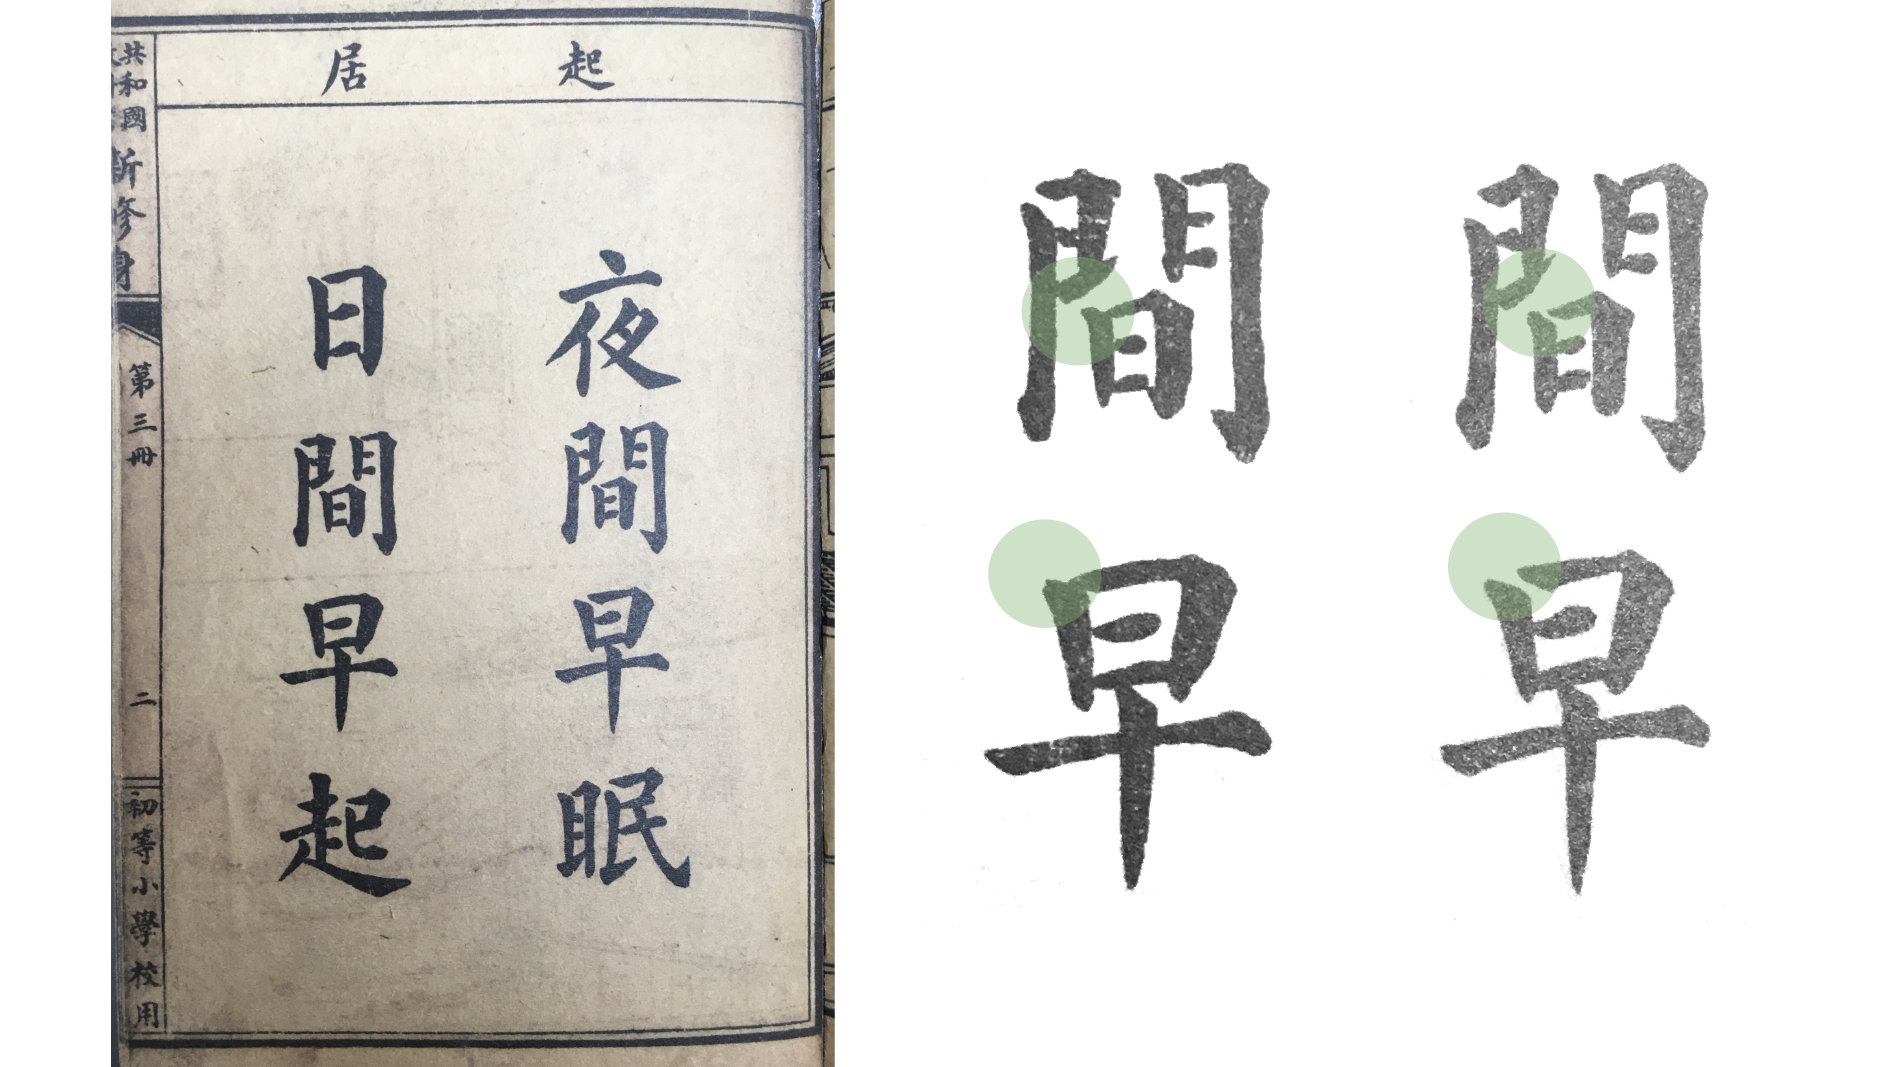 起居
夜間早眠
日間早起
共和國
新修身
第三冊
二
初等小學校用
間間
早早